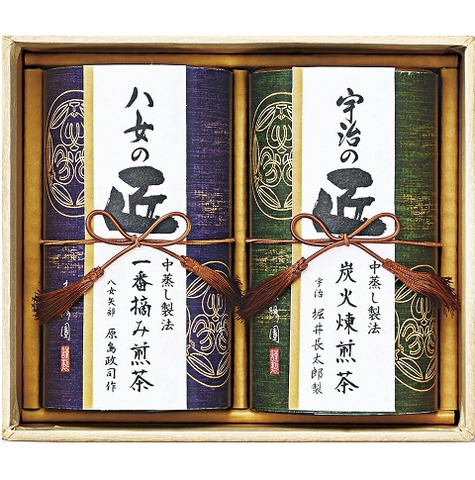 宇治の
匠
中蒸し製法
炭火煉煎茶
宇治 堀井長太郎製
園
謹製
八女の
匠
中蒸し製法
一番摘み煎茶
八女矢部 原島政司作
園
謹製